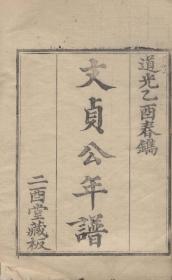 道光乙酉春鐫
文貞公年譜
二酉堂藏板